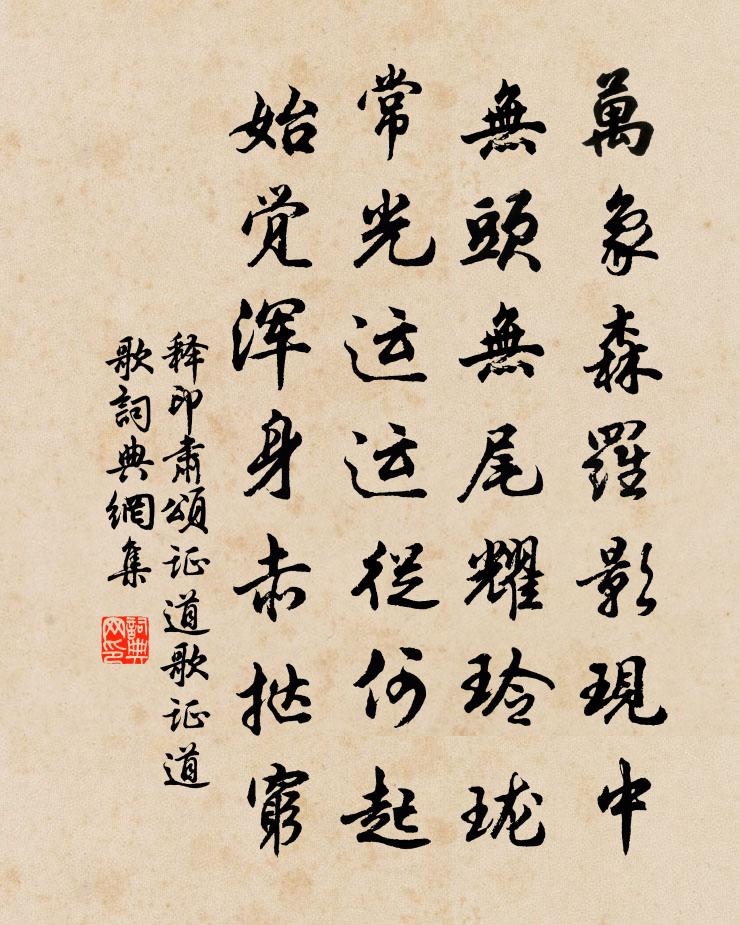 萬象森羅影現中
無頭無尾耀玲珑
常光运运從何起
始觉浑身赤挞窮
释印肃頌证道歌证道
歌詞典網集
詞典
网印